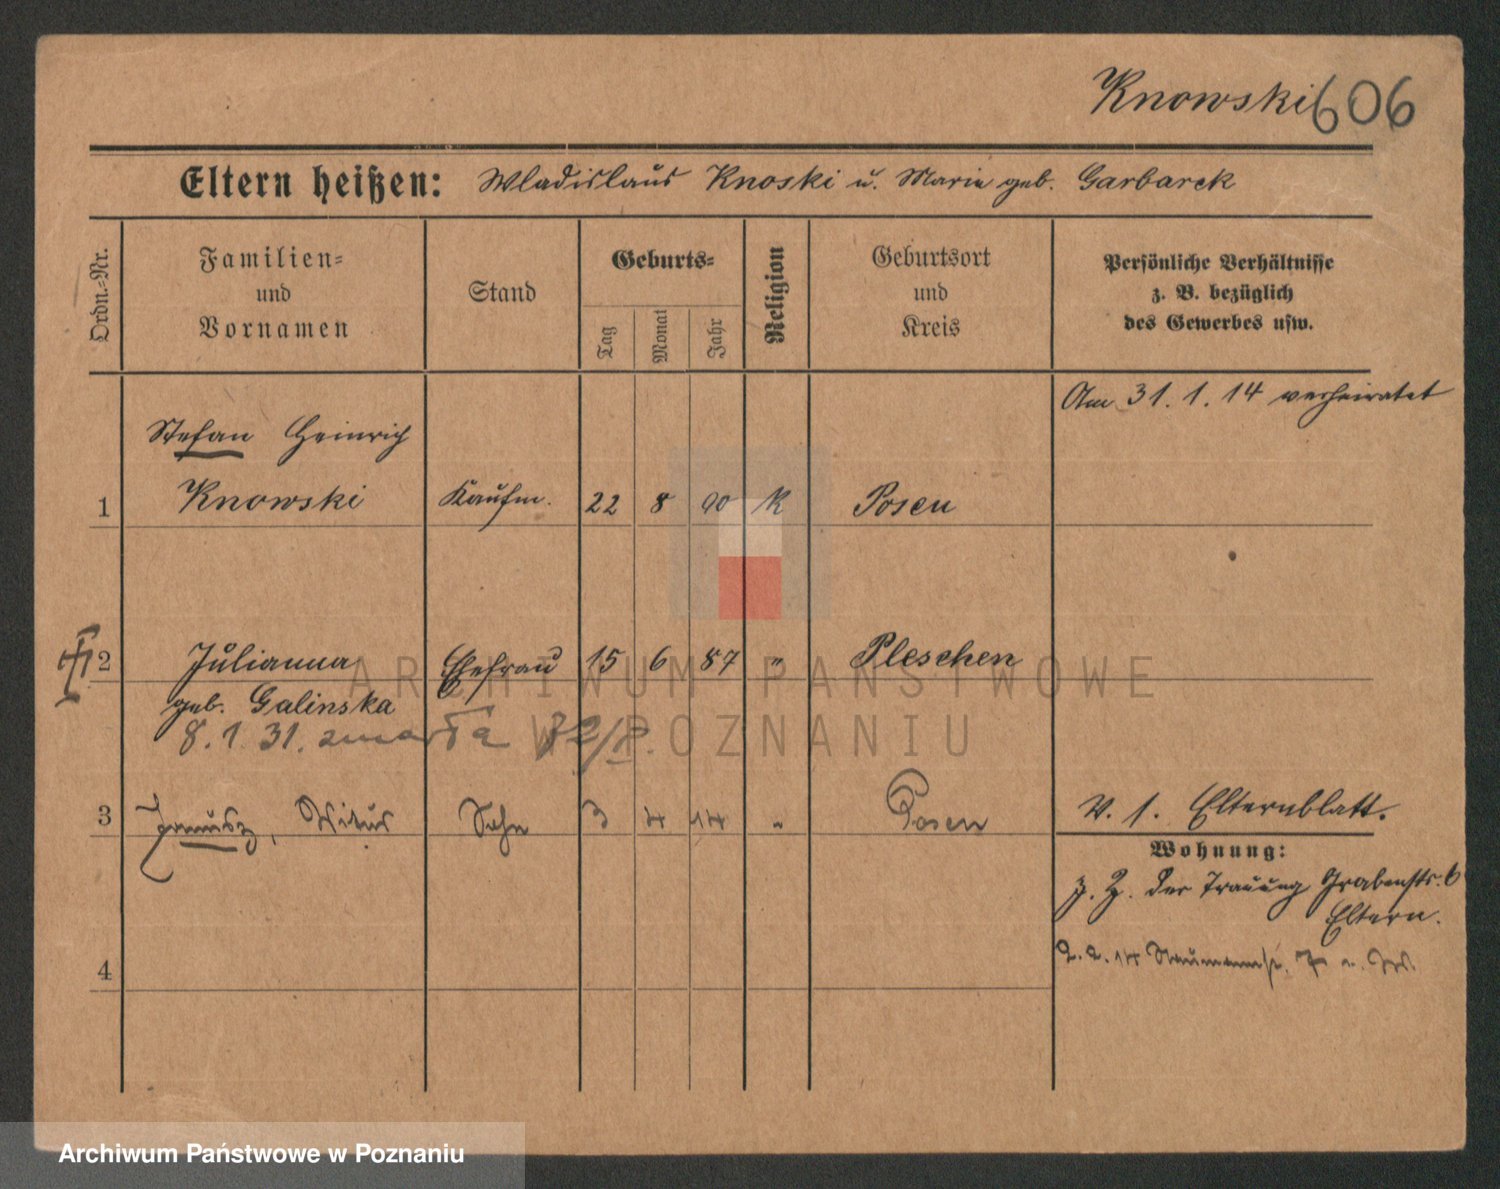 Knowski 606
Eltern heißen: Wladislaus Knoski u. Marie geb. Garbarek
Ordn.-Nr.
Familien-
und
Vornamen
Stand
Geburts-
Tag
Monat
Jahr
Religion
Geburtsort
und
Kreis
Persönliche Verhältnisse
z. B. bezüglich
des Gewerbes usw.
Am 31. 1. 14 verheiratet
Stefan Heinrich
1 Knowski Kaufm. 22 8 90 K Posen
2 Julianna Ehefrau 15 6 87 " Pleschen
geb. Galinska
8. 1. 31. zmarła
3 Janusz, Witus Sohn 3 4 14 " Posen
V. s. Elternblatt.
Wohnung:
z. Z. der Trauung Grabenstr. 6
Eltern.
2. 2. 14 Naumannstr. 7
4
ARCHIWUM PAŃSTWOWE
W POZNANIU
Archiwum Państwowe w Poznaniu